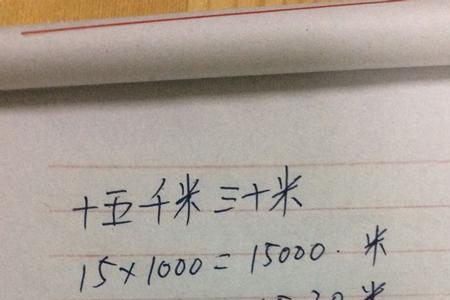 十五千米三十米
15×1000=15000.米